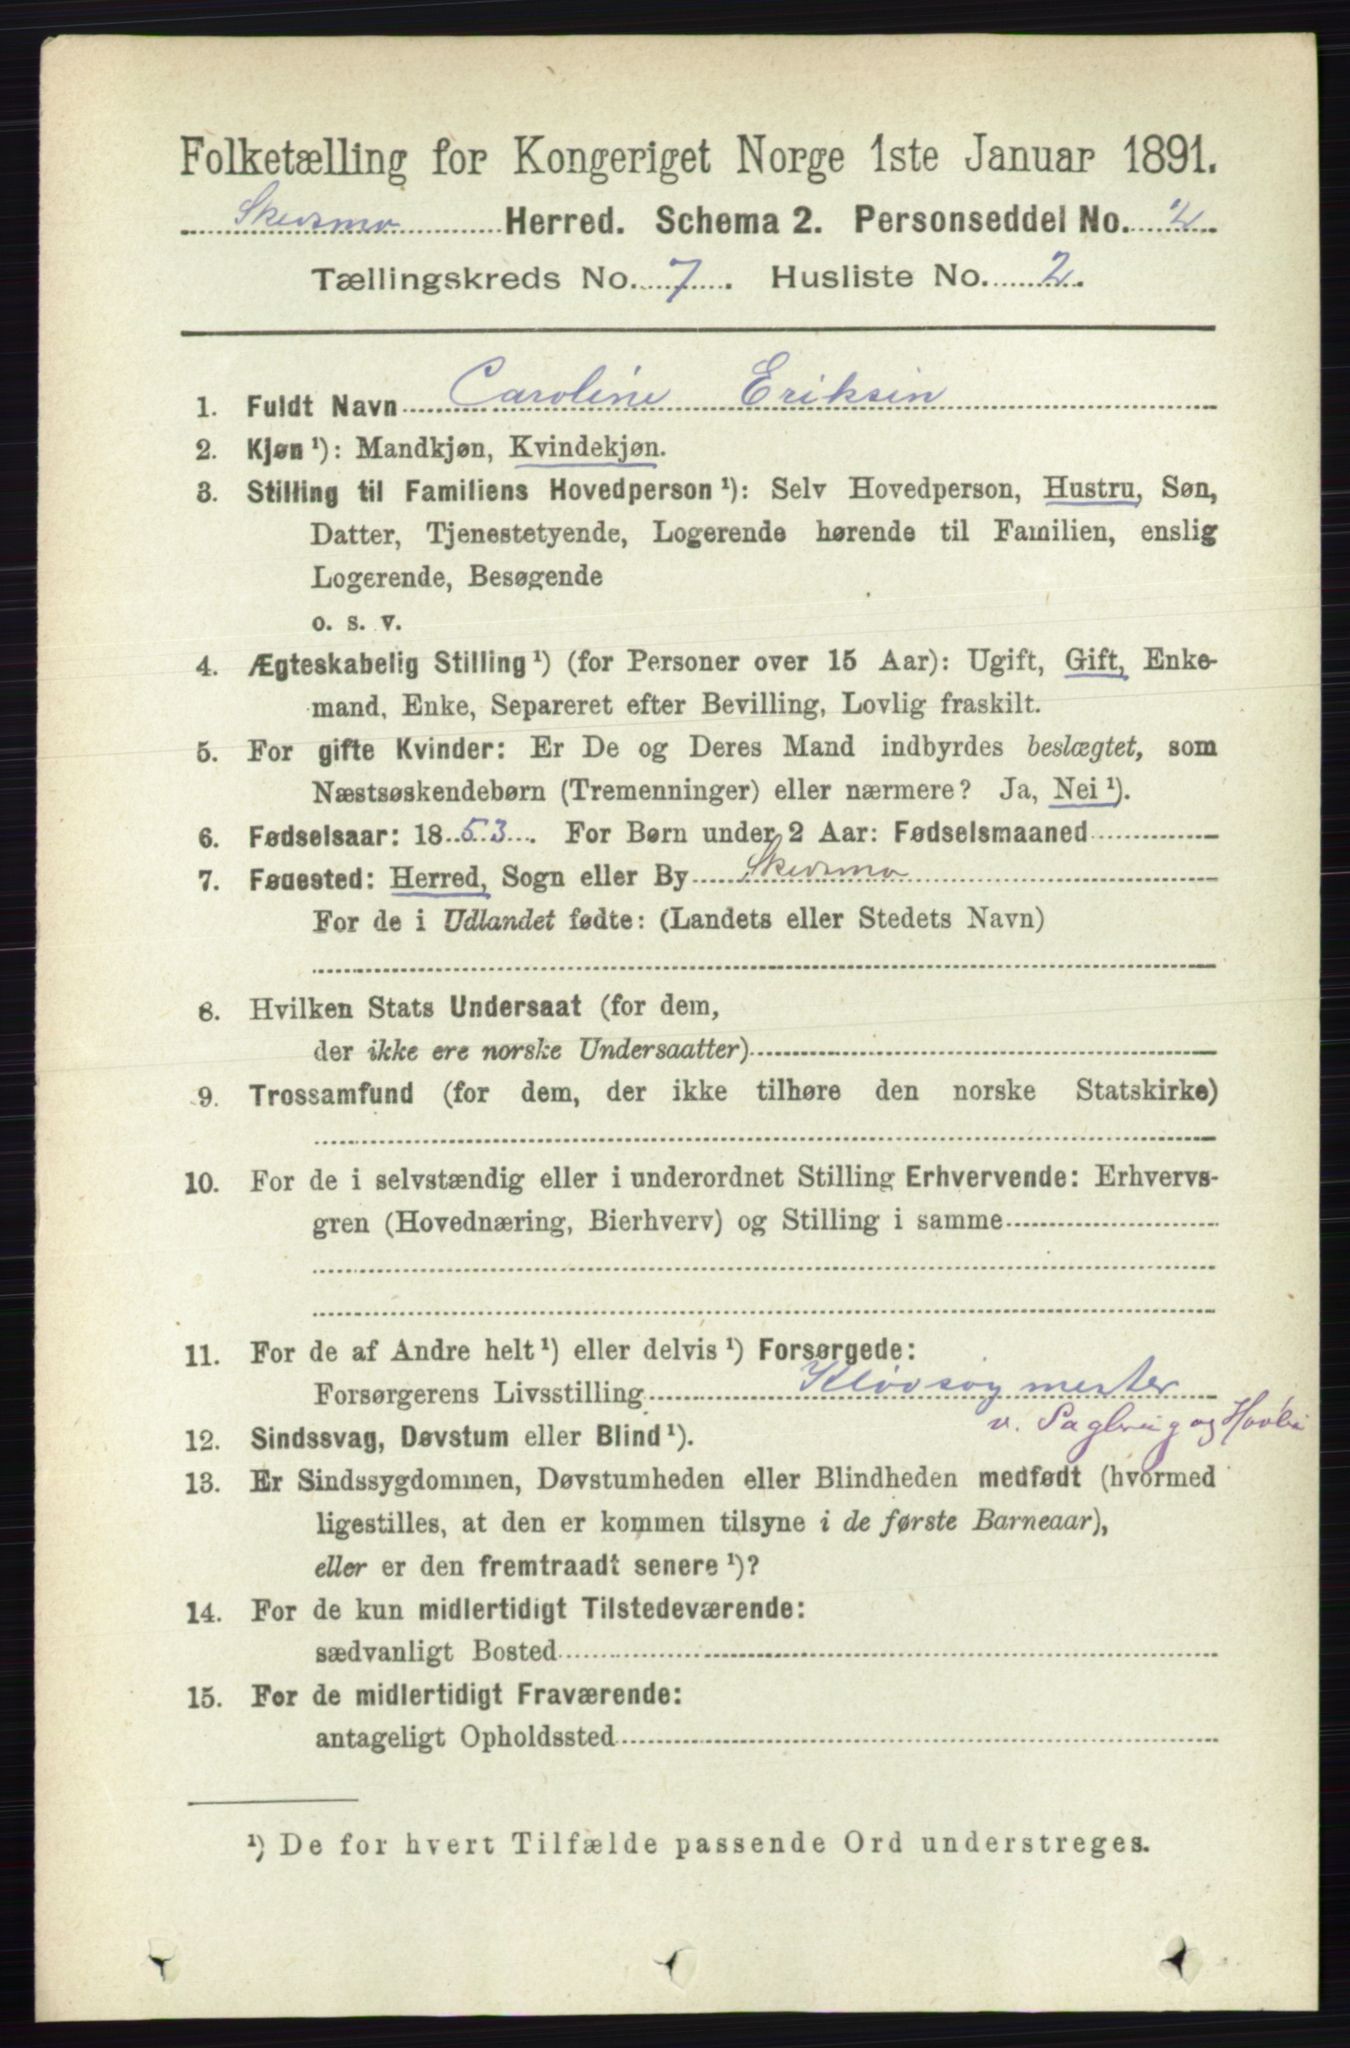 Folketælling for Kongeriget Norge 1ste Januar 1891.
Skedsmo Herred. Schema 2. Personseddel No. 2.
Tællingskreds No. 7. Husliste No. 2.
1. Fuldt Navn Caroline Eriksen
2. Kjøn ¹): Mandkjøn, Kvindekjøn.
3. Stilling til Familiens Hovedperson ¹): Selv Hovedperson, Hustru, Søn,
Datter, Tjenestetyende, Logerende hørende til Familien, enslig
Logerende, Besøgende
o. s. v.
4. Ægteskabelig Stilling ¹) (for Personer over 15 Aar): Ugift, Gift, Enke-
mand, Enke, Separeret efter Bevilling, Lovlig fraskilt.
5. For gifte Kvinder: Er De og Deres Mand indbyrdes beslægtet, som
Næstsøskendebørn (Tremenninger) eller nærmere? Ja, Nei ¹).
6. Fødselsaar: 1853. For Børn under 2 Aar: Fødselsmaaned
7. Fødested: Herred, Sogn eller By Skedsmo
For de i Udlandet fødte: (Landets eller Stedets Navn)
8. Hvilken Stats Undersaat (for dem,
der ikke ere norske Undersaatter)
9. Trossamfund (for dem, der ikke tilhøre den norske Statskirke)
10. For de i selvstændig eller i underordnet Stilling Erhvervende: Erhvervs-
gren (Hovednæring, Bierhverv) og Stilling i samme
11. For de af Andre helt ¹) eller delvis ¹) Forsørgede:
Forsørgerens Livsstilling Kløvsagmester
v. Sagbrug og Høvleri
12. Sindssvag, Døvstum eller Blind ¹).
13. Er Sindssygdommen, Døvstumheden eller Blindheden medfødt (hvormed
ligestilles, at den er kommen tilsyne i de første Barneaar),
eller er den fremtraadt senere ¹)?
14. For de kun midlertidigt Tilstedeværende:
sædvanligt Bosted
15. For de midlertidigt Fraværende:
antageligt Opholdssted
¹) De for hvert Tilfælde passende Ord understreges.